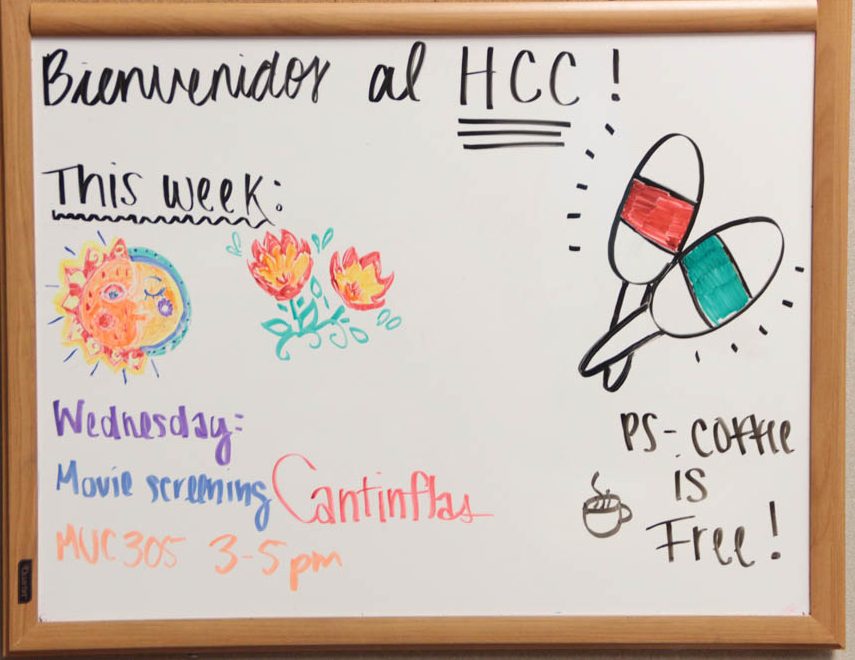 Bienvenidos al HCC!
This week:
Wednesday:
Movie screening Cantinflas
MUC 305 3-5pm
PS- coffee
is
Free!
Quartet